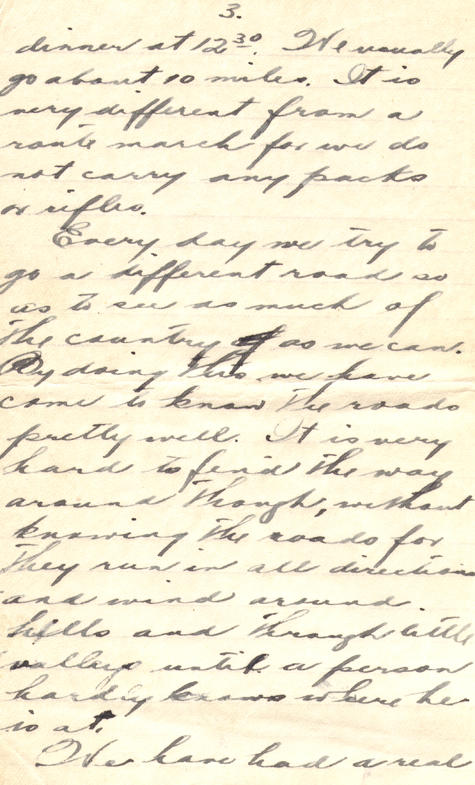 3.
dinner at 12³⁰. We usually
go about 10 miles. It is
very different from a
route march for we do
not carry any packs
or rifles.
Every day we try to
go a different road so
as to see as much of
the country as we can.
By doing this we have
come to know the roads
pretty well. It is very
hard to find the way
around though, without
knowing the roads for
they run in all directions
and wind around
hills and through little
valleys until a person
hardly knows where he
is at.
We have had a real